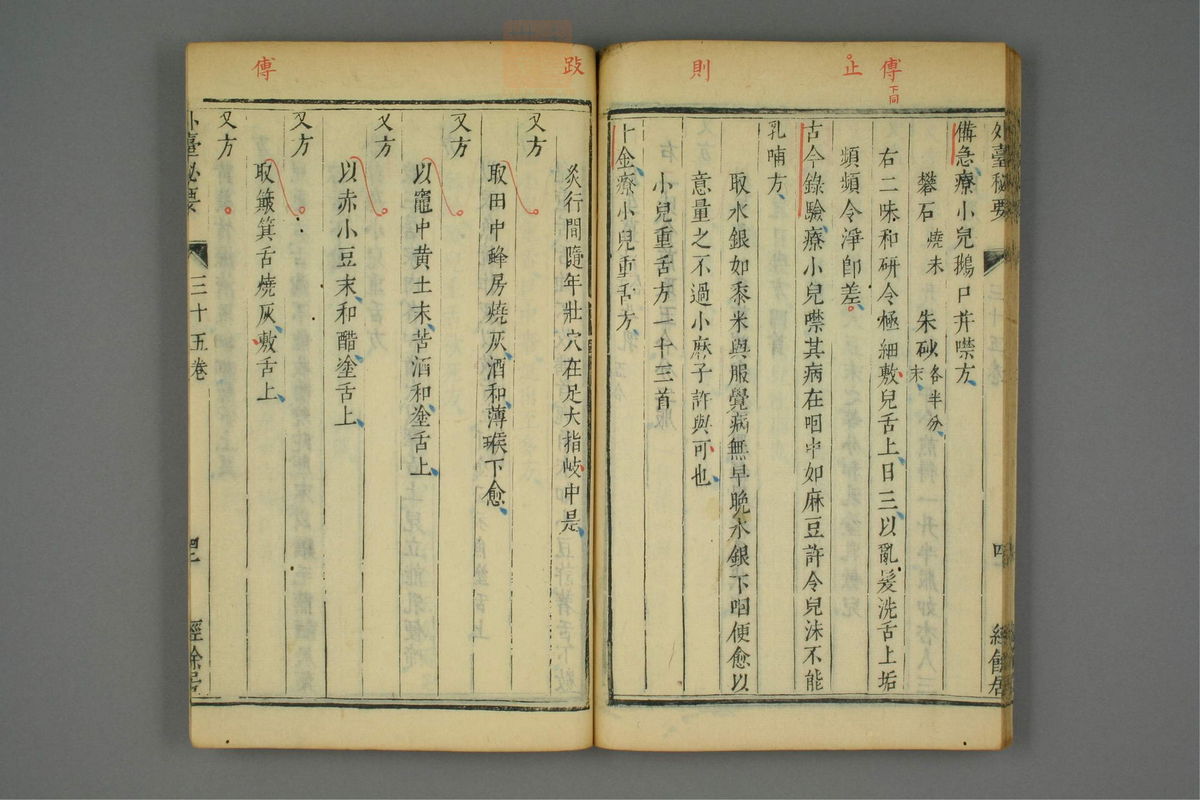 傅
下同
止
則
外臺秘要
備急療小兒鵝口并噤方
礬石燒末 朱砂各半分末
右二味和研令極細敷兒舌上日三以亂髮洗舌上垢
頻頻令淨卽差
古今錄驗療小兒噤其病在咽中如麻豆許令兒沫不能
乳哺方
取水銀如黍米與服覺病無早晚水銀下咽便愈以
意量之不過小麻子許與可也
小兒重舌方一十三首
千金療小兒重舌方
跂
傅
灸行間隨年壯穴在足大指岐中是
又方
取田中蜂房燒灰酒和薄喉下愈
又方
以竈中黄土末苦酒和塗舌上
又方
以赤小豆末和醋塗舌上
又方
取簸箕舌燒灰敷舌上
又方
外臺秘要
三十五卷
經餘居